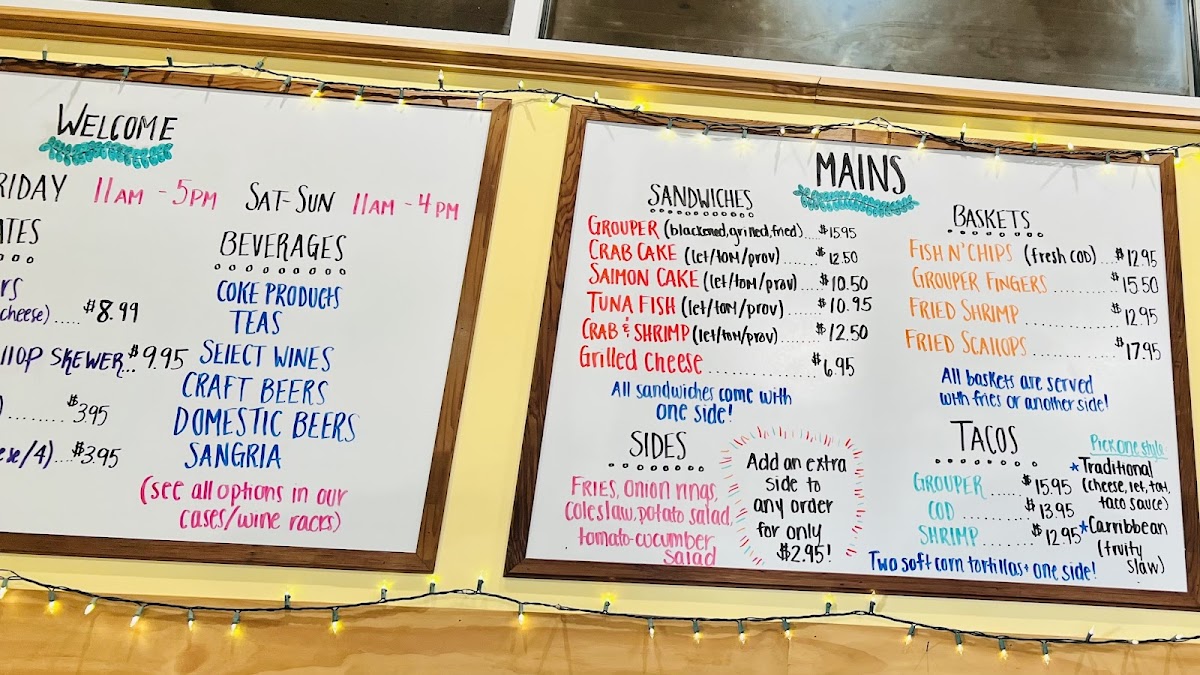 WELCOME
RIDAY 11AM - 5PM SAT-SUN 11AM - 4PM
ATES
RS
cheese)..... $8.99
LLOP SKEWER.. $9.95
)....... $3.95
ese/4)... $3.95
BEVERAGES
COKE PRODUCTS
TEAS
SELECT WINES
CRAFT BEERS
DOMESTIC BEERS
SANGRIA
(see all options in our
cases/wine racks)
MAINS
SANDWICHES
GROUPER (blackened, grilled, fried)... $15.95
CRAB CAKE (let/tom/prov)...... $12.50
SALMON CAKE (let/tom/prov)..... $10.50
TUNA FISH (let/tom/prov)....... $10.95
CRAB & SHRIMP (let/tom/prov)..... $12.50
Grilled Cheese ............... $6.95
All sandwiches come with
one side!
SIDES
FRIES, Onion rings,
Coleslaw, potato salad,
tomato-cucumber
salad
Add an extra
side to
any order
for only
$2.95!
BASKETS
FISH N' CHIPS (fresh COD)... $12.95
GROUPER FINGERS .......... $15.50
FRIED SHRIMP ............. $12.95
FRIED SCALLOPS ........... $17.95
All baskets are served
with fries or another side!
TACOS
GROUPER ..... $15.95
COD ........... $13.95
SHRIMP ........ $12.95
Pick one style
*Traditional
(cheese, let, tom,
taco sauce)
*Carribbean
(fruity
slaw)
Two soft corn tortillas + one side!